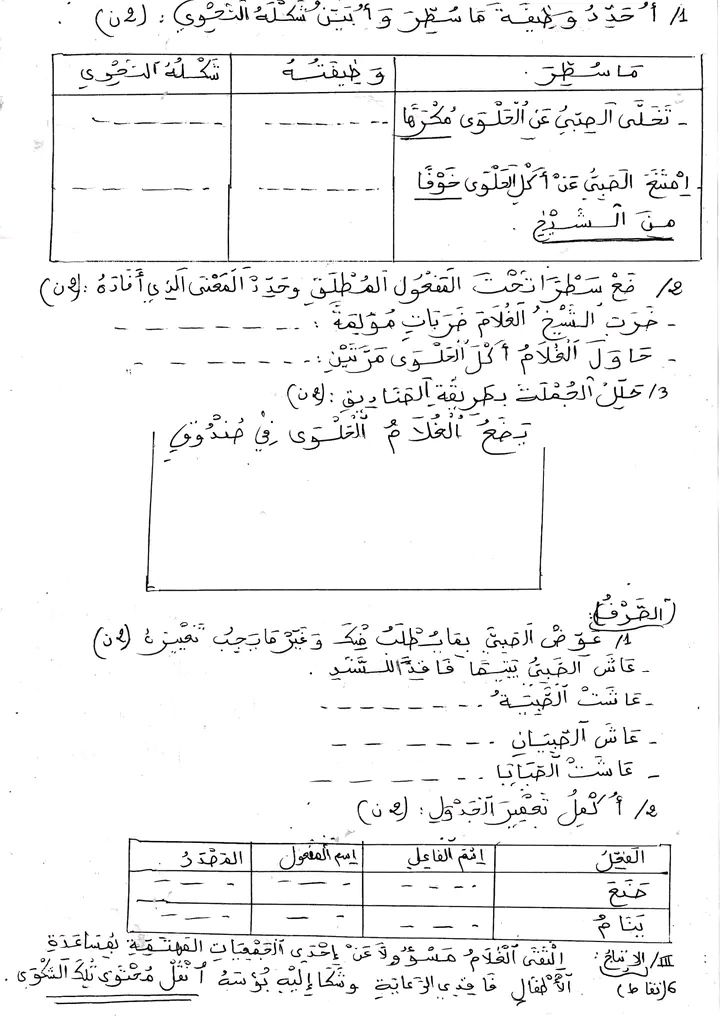 1/ أُحَدِّدُ وَظِيفَةَ مَا سُطِّرَ وَ أُبَيِّنُ شَكْلَهُ النَّحْوِيَّ : (2ن) .
مَا سُطِّرَ . وَظِيفَتُهُ شَكْلُهُ النَّحْوِي
- تَخَلَّى الصَّبِيُّ عَنِ الْحَلْوَى مُكْرَهًا
- اِمْتَنَعَ الصَّبِيُّ عَنْ أَكْلِ الْحَلْوَى خَوْفًا
مِنَ الشَّيْخِ .
2/ ضَعْ سَطْرًا تَحْتَ الْمَفْعُولِ الْمُطْلَقِ وحَدِّدْ الْمَعْنَى الَّذِي أَفَادَهُ : (2ن)
- ضَرَبَ الشَّيْخُ الْغُلَامَ ضَرَبَاتٍ مُؤْلِمَةً :
- حَاوَلَ الْغُلَامُ أَكْلَ الْحَلْوَى مَرَّتَيْنِ :
3/ حَلِّلِ الْجُمْلَةَ بِطَرِيقَةِ الصَّنَادِيقِ : (2ن)
يَضَعُ الْغُلَامُ الْحَلْوَى فِي صُنْدُوقٍ
الصَّرْفُ :
1/ عَوِّضْ الصَّبِيَّ بِمَا يُطْلَبُ مِنْكَ وَغَيِّرْ مَا يَجِبُ تَغْيِيرُهُ (2ن)
- عَاشَ الصَّبِيُّ يَتِيمًا فَاقِدًا لِلسَّنَدِ .
- عَاشَتْ الصَّبِيَّةُ
- عَاشَ الصَّبِيَّانِ
- عَاشَتْ الصَّبَايَا
2/ أُكْمِلُ تَعْمِيرَ الْجَدْوَلِ : (2ن)
الْفِعْلُ اِسْمُ الْفَاعِلِ اِسْمُ الْمَفْعُول الْمَصْدَرُ
صَنَعَ
يَنَامُ
III/ الإنتاج : اِلْتَقَى الْغُلَامُ مَسْؤُولًا عَنْ إِحْدَى الْجَمْعِيَاتِ الْمُهْتَمَّةِ بِمُسَاعَدَةِ
6(نقاط) الْأَطْفَالِ فَاقِدِي الرِّعَايَةِ وشَكَا إِلَيْهِ بُؤْسَهُ اُنْقُلْ مُحْتَوَى تِلْكَ الشَّكْوَى .